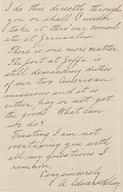 I do this directly through
you or shall I under
take it thro our consul
ate at Jerusalem
There is one more matter.
The port at Jaffa is
still demanding duties
of our two American
missions and it is
either pay or not get
the goods. What can
we do?
Trusting I am not
overtaxing you with
all my questions I
remain
Very sincerely
A. Edward Kelsey